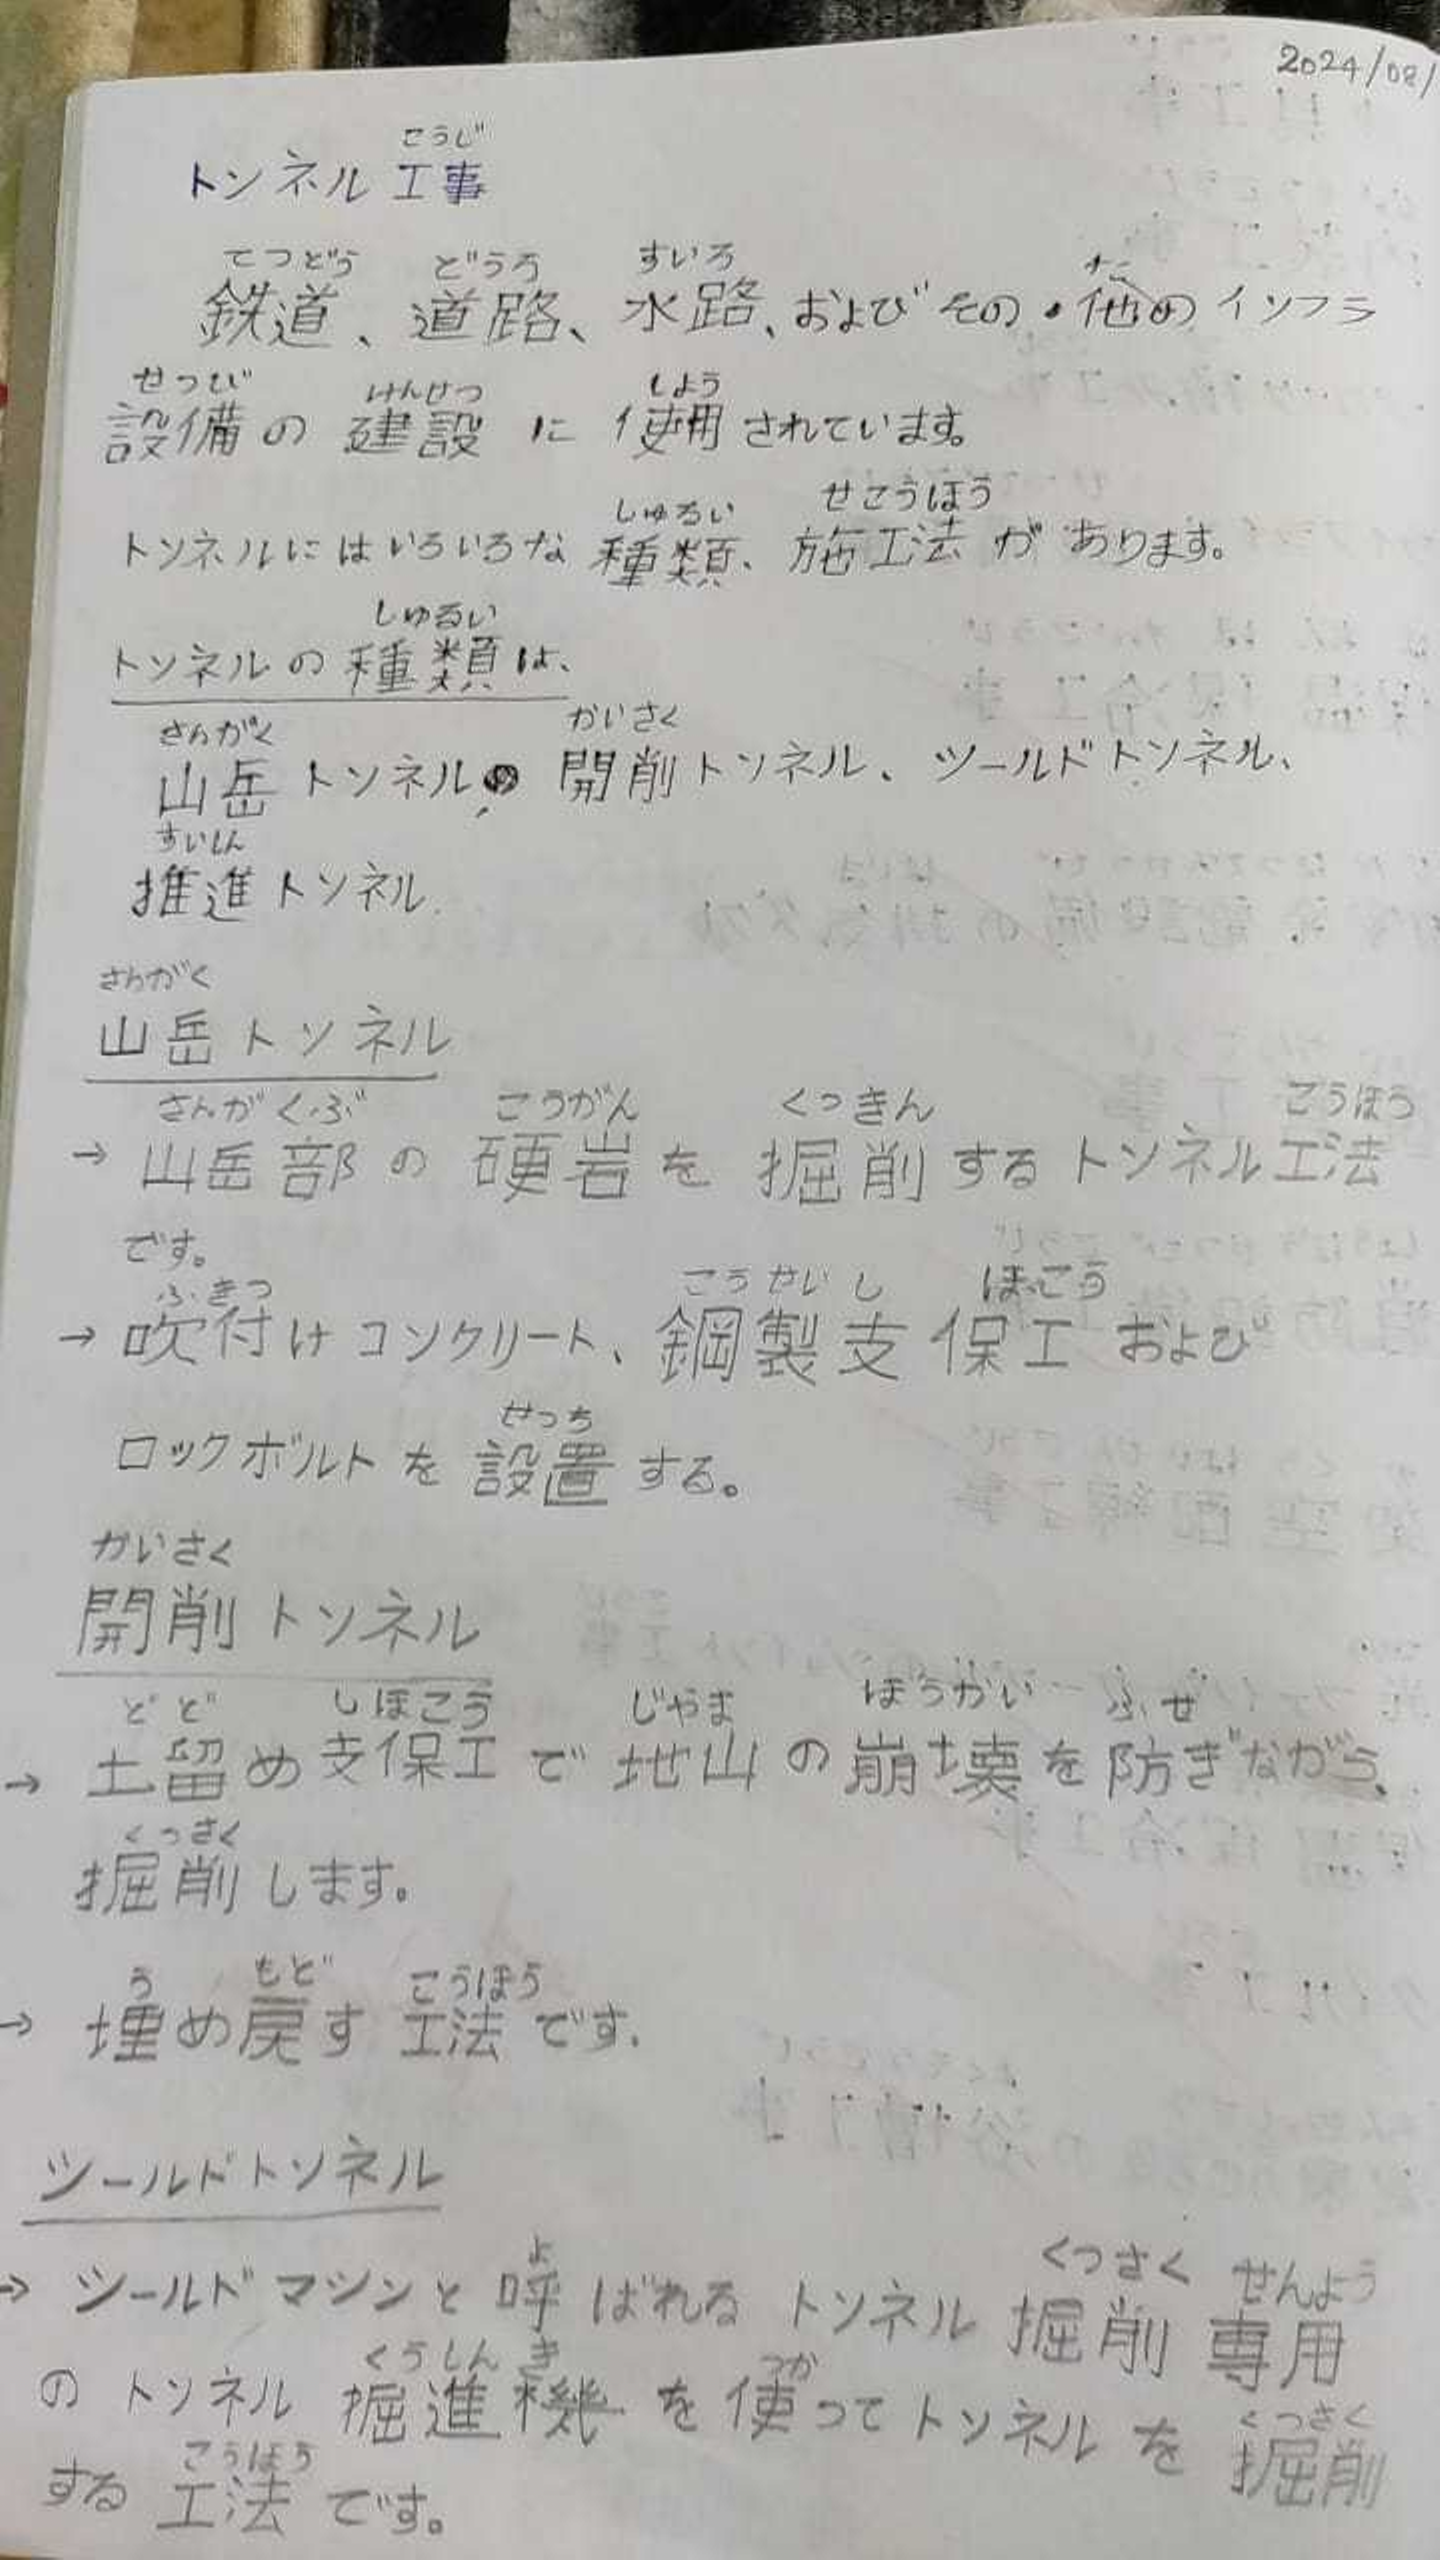 2024/08/
こうじ
トンネル工事
てつどう どうろ すいろ た
鉄道、道路、水路、およびその・他のインフラ
せつび けんせつ しよう
設備の建設に使用されています。
しゅるい せこうほう
トンネルにはいろいろな種類、施工法があります。
しゅるい
トンネルの種類は、
さんがく かいさく
山岳トンネル、開削トンネル、シールドトンネル、
すいしん
推進トンネル
さんがく
山岳トンネル
さんがくぶ こうがん くっきん こうほう
→ 山岳部の硬岩を掘削するトンネル工法
です。
ふきつ こうせいし ほこう
→ 吹付けコンクリート、鋼製支保工および
せっち
ロックボルトを設置する。
かいさく
開削トンネル
どど しほこう じやま ほうかい ふせ
→ 土留め支保工で地山の崩壊を防ぎながら、
くっさく
掘削します。
う もど こうほう
→ 埋め戻す工法です.
シールドトンネル
よ くっさく せんよう
→ シールドマシンと呼ばれるトンネル掘削専用
くうしんき つか くっさく
のトンネル掘進機を使ってトンネルを掘削
こうほう
する工法です。